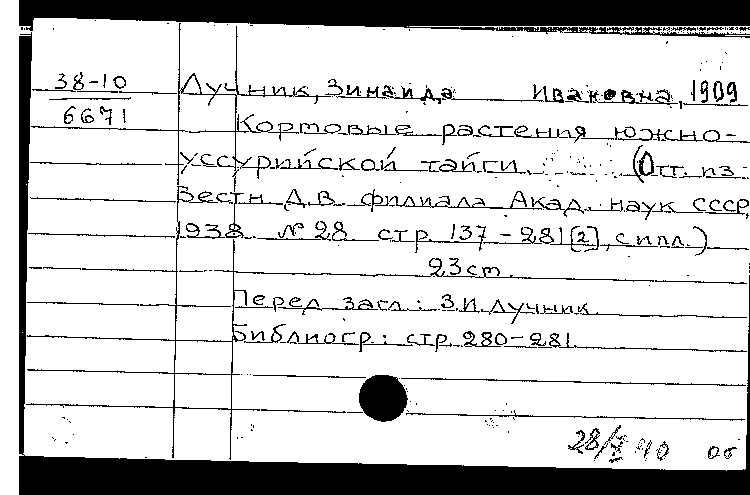 38-10
6671
Лучник, Зинаида Ивановна, 1909
Кормовые растения южно-
уссурийской тайги. (Отт. из
Вестн Д.В. филиала Акад. наук СССР,
1938 № 28 стр. 137-281 [2], с илл.)
23 cm.
Перед загл.: З.И. Лучник.
Библиогр.: стр. 280-281.
40 Об